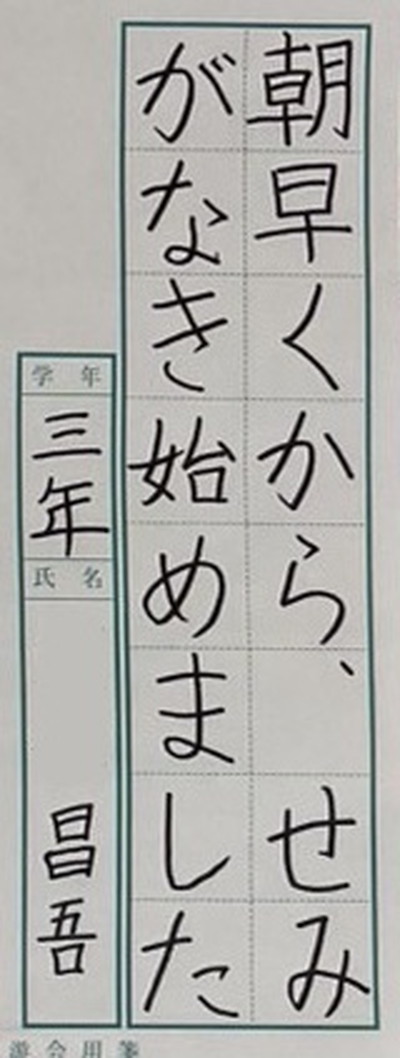 朝早くから、せみ
がなき始めました
学年
三年
氏名
昌吾